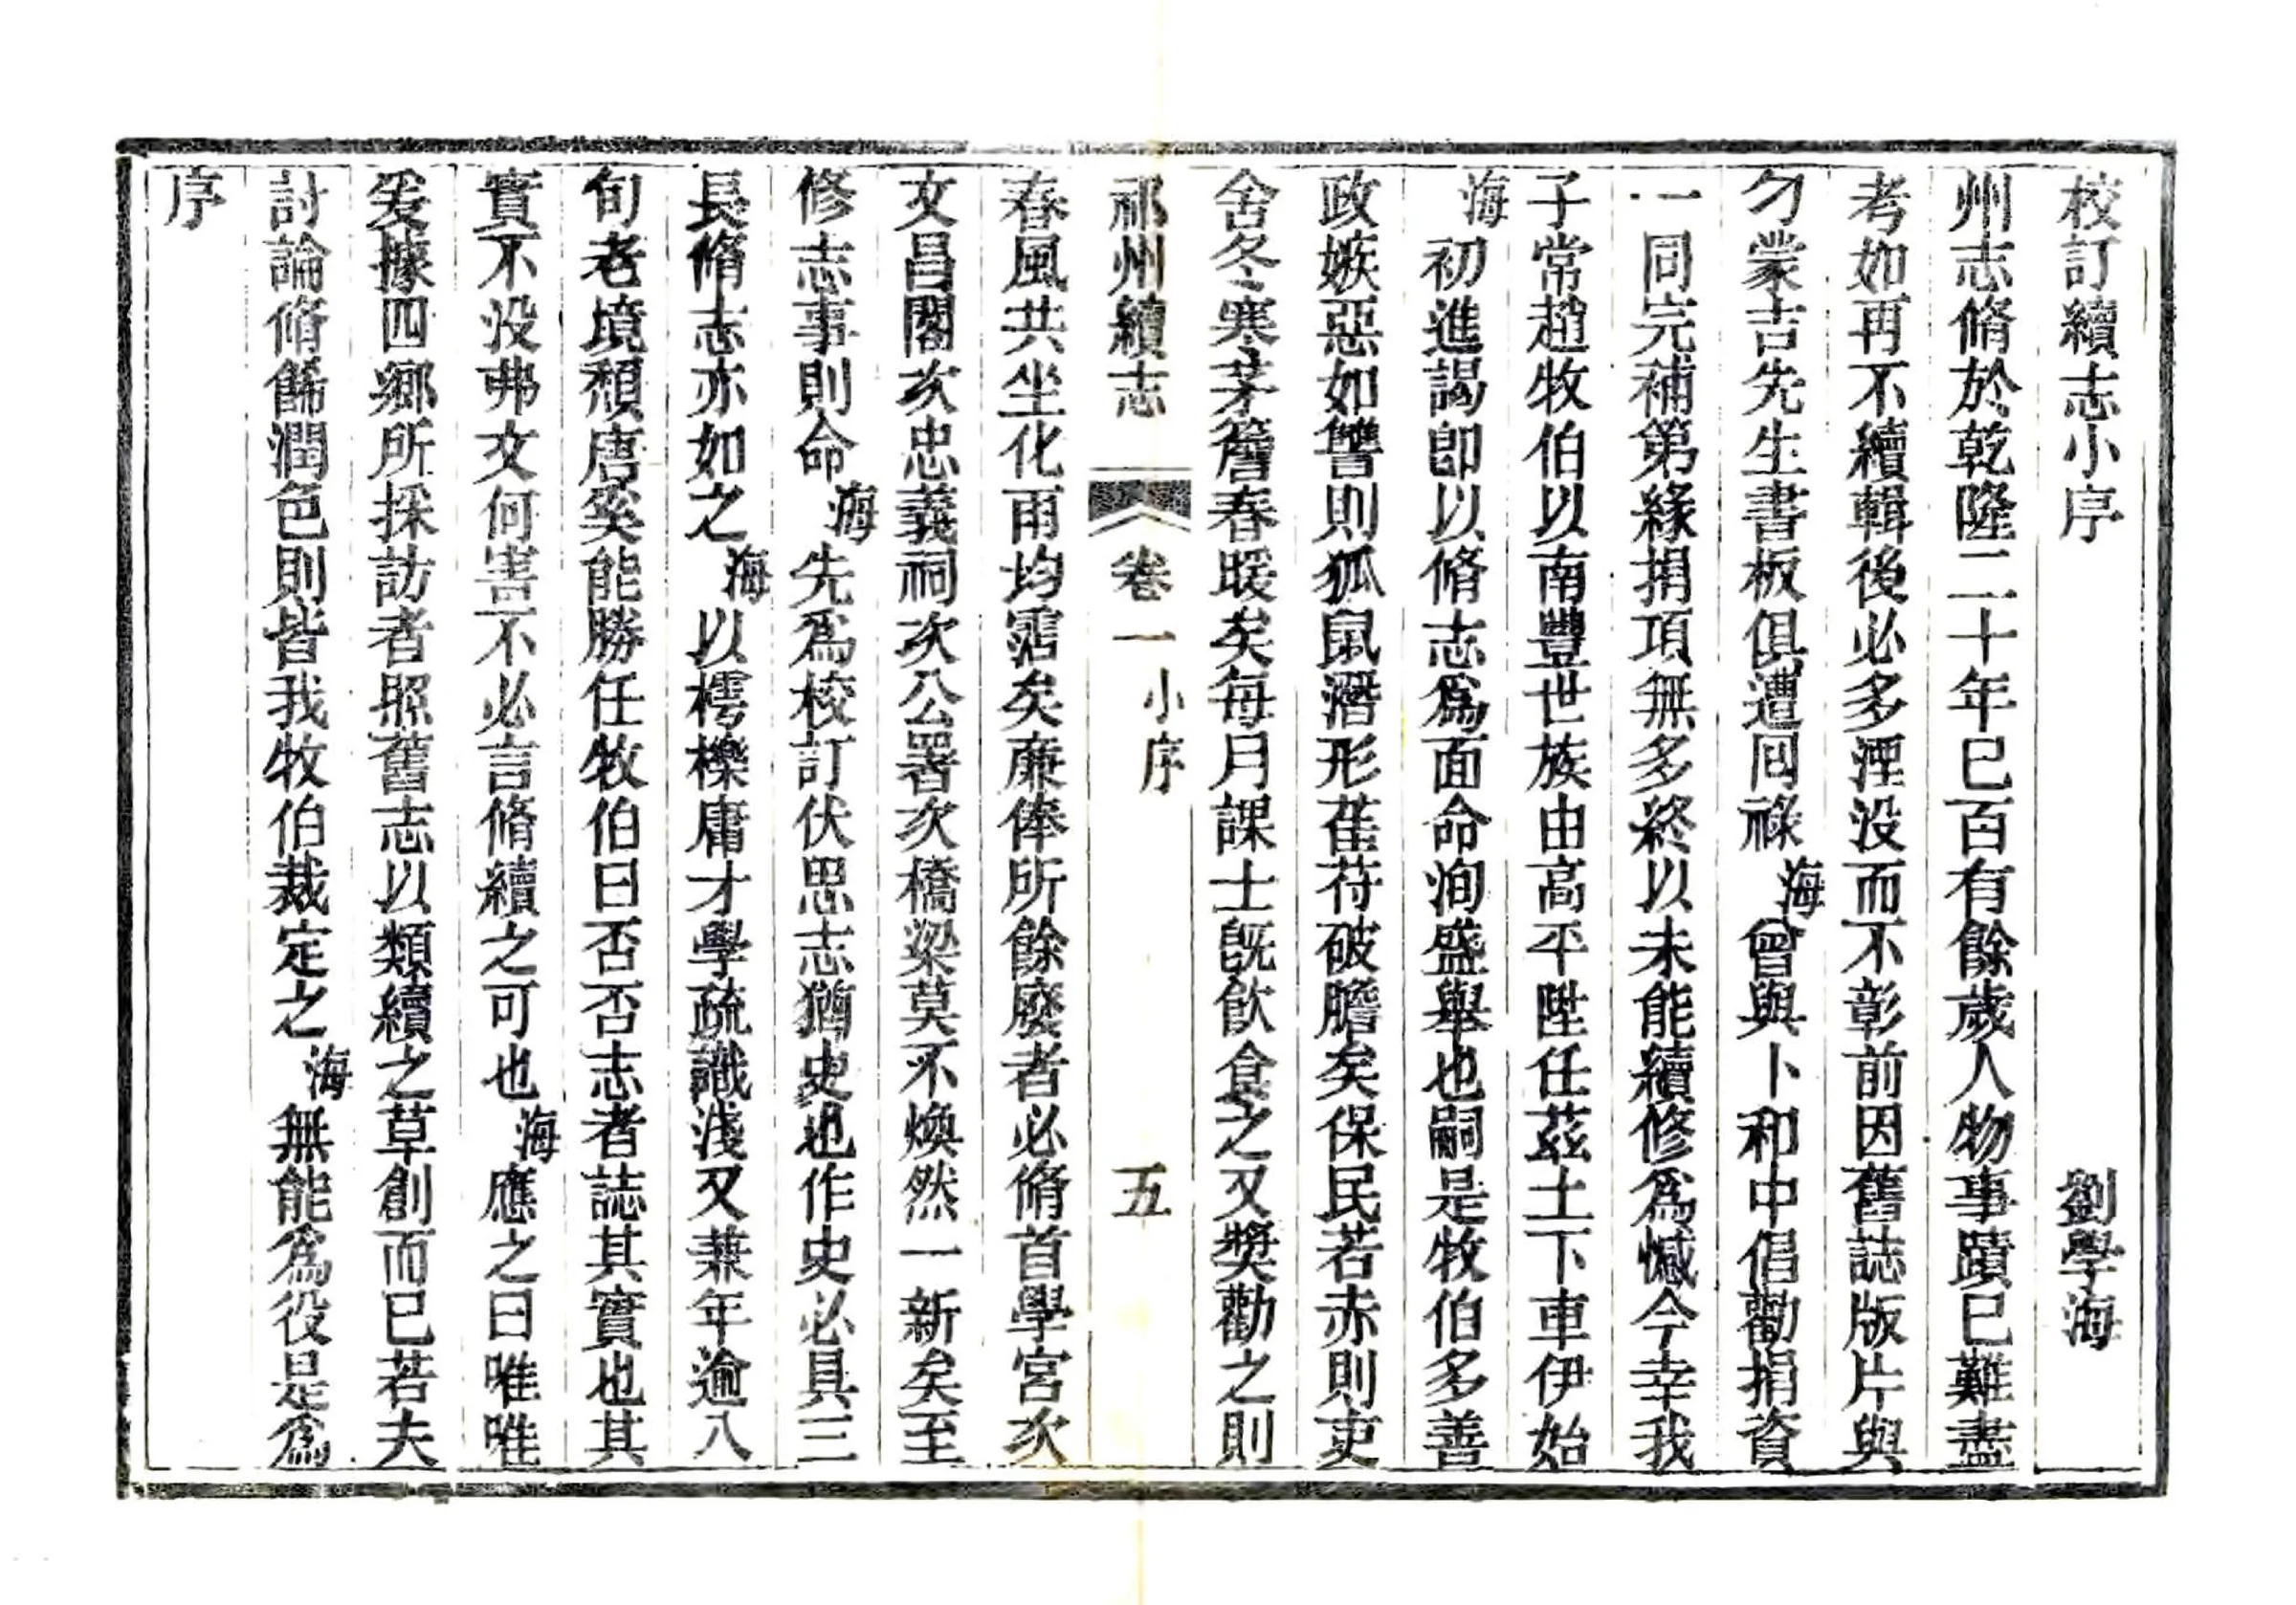 校訂續志小序　劉學海
州志脩於乾隆二十年巳百有餘歲人物事蹟巳難盡
考如再不續輯後必多湮没而不彰前因舊誌版片與
勺蒙吉先生書板俱遭囘祿海曾與卜和中倡勸捐資
一同完補第緣捐項無多終以未能續修爲憾今幸我
子常趙牧伯以南豐世族由高平陞任茲土下車伊始
海初進謁即以脩志爲面命洵盛舉也嗣是牧伯多善
政嫉惡如讐則狐鼠潛形萑苻破膽矣保民若赤則吏
舍冬寒茅簷春暖矣每月課士旣飲食之又奬勸之則
祁州續志　卷一　小序　五
春風共坐化雨均霑矣廉俸所餘廢者必脩首學宮次
文昌閣次忠義祠次公署次橋梁莫不煥然一新矣至
修志事則命海先爲校訂伏思志猶史也作史必具三
長脩志亦如之海以樗櫟庸才學疏識淺又兼年逾八
旬老境頹唐奚能勝任牧伯曰否否志者誌其實也其
實不没弗文何害不必言脩續之可也海應之曰唯唯
爰據四鄉所採訪者照舊志以類續之草創而巳若夫
討論脩餙潤色則皆我牧伯裁定之海無能爲役是爲
序